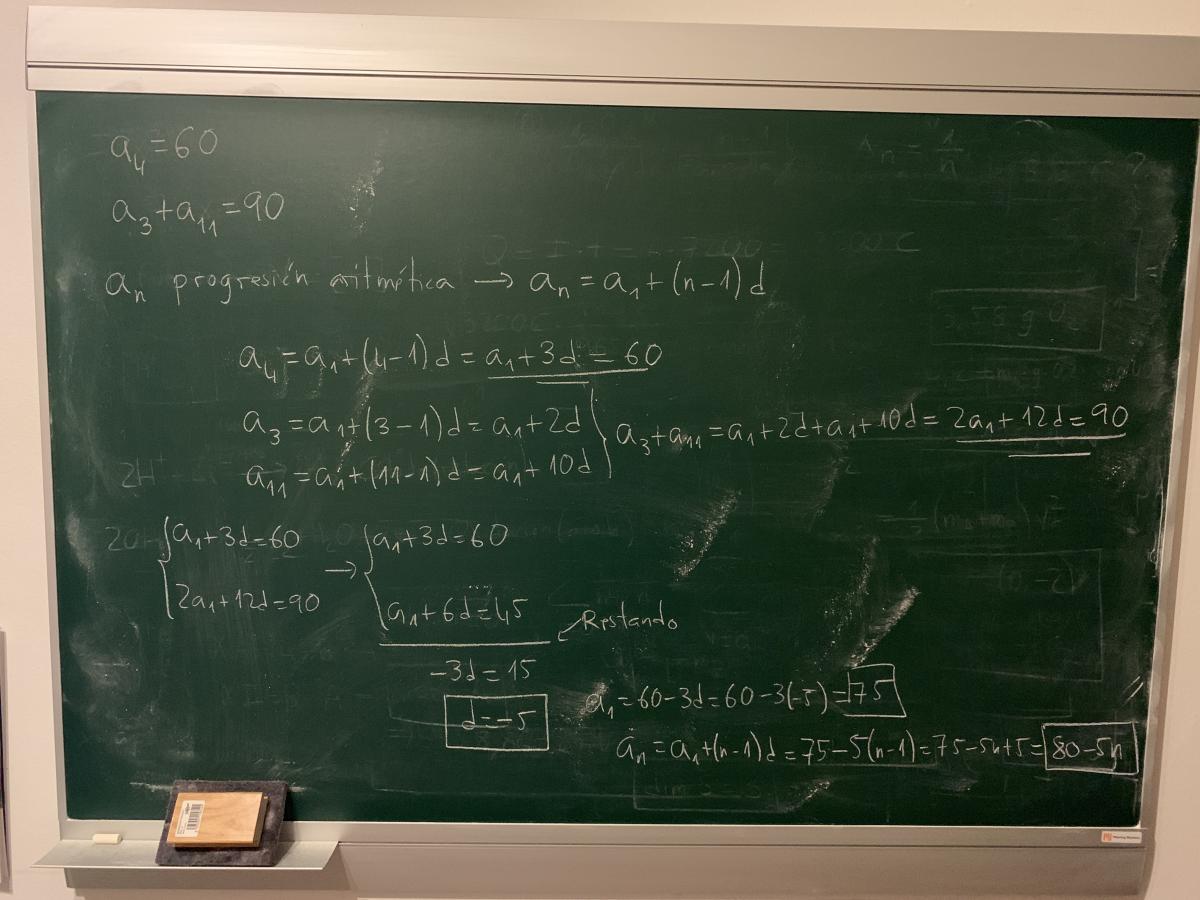 a₄=60
a₃+a₁₁=90
aₙ progresión aritmética → aₙ = a₁+(n-1)d
a₄=a₁+(4-1)d=a₁+3d=60
a₃=a₁+(3-1)d=a₁+2d
a₁₁=a₁+(11-1)d=a₁+10d
a₃+a₁₁=a₁+2d+a₁+10d=2a₁+12d=90
a₁+3d=60
2a₁+12d=90
→
a₁+3d=60
a₁+6d=45
Restando
-3d=15
d=-5
a₁=60-3d=60-3(-5)=75
aₙ=a₁+(n-1)d=75-5(n-1)=75-5n+5=80-5n